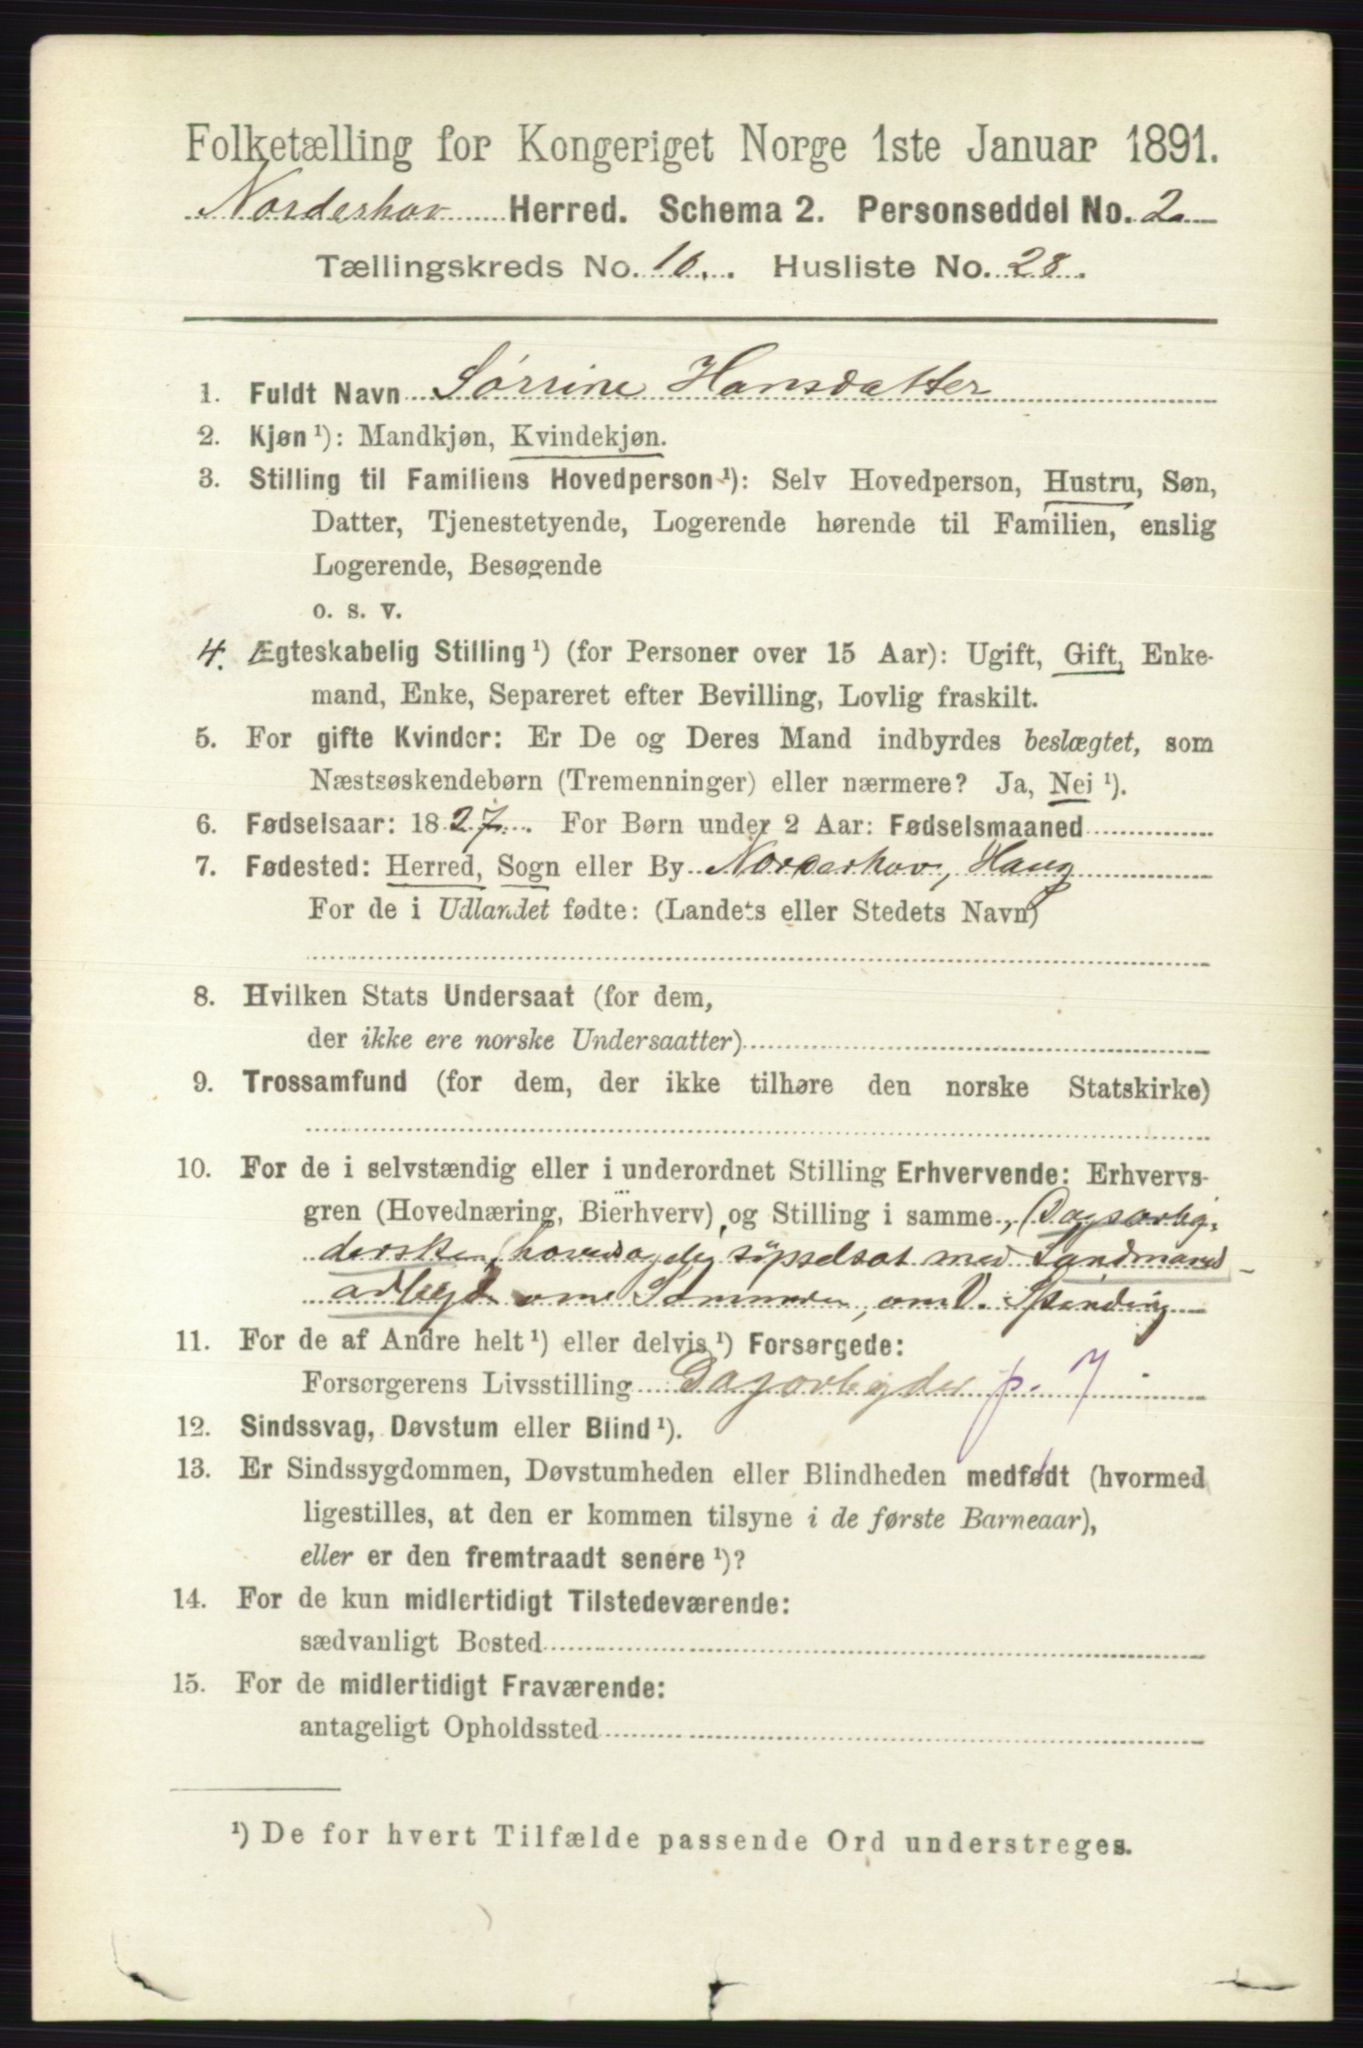 Folketælling for Kongeriget Norge 1ste Januar 1891.
Norderhov Herred. Schema 2. Personseddel No. 2
Tællingskreds No. 10. Husliste No. 28.
1. Fuldt Navn Sørrine Hansdatter
2. Kjøn ¹): Mandkjøn, Kvindekjøn.
3. Stilling til Familiens Hovedperson ¹): Selv Hovedperson, Hustru, Søn,
Datter, Tjenestetyende, Logerende hørende til Familien, enslig
Logerende, Besøgende
o. s. v.
4. Ægteskabelig Stilling ¹) (for Personer over 15 Aar): Ugift, Gift, Enke-
mand, Enke, Separeret efter Bevilling, Lovlig fraskilt.
5. For gifte Kvinder: Er De og Deres Mand indbyrdes beslægtet, som
Næstsøskendebørn (Tremenninger) eller nærmere? Ja, Nei ¹).
6. Fødselsaar: 1827. For Børn under 2 Aar: Fødselsmaaned
7. Fødested: Herred, Sogn eller By Norderhov, Haug
For de i Udlandet fødte: (Landets eller Stedets Navn)
8. Hvilken Stats Undersaat (for dem,
der ikke ere norske Undersaatter)
9. Trossamfund (for dem, der ikke tilhøre den norske Statskirke)
10. For de i selvstændig eller i underordnet Stilling Erhvervende: Erhvervs-
gren (Hovednæring, Bierhverv) og Stilling i samme, Dagsarbei-
derske, sysselsat med
om V. Spinding
11. For de af Andre helt ¹) eller delvis ¹) Forsørgede:
Forsørgerens Livsstilling Dagarbeyder p. 7
12. Sindssvag, Døvstum eller Blind ¹).
13. Er Sindssygdommen, Døvstumheden eller Blindheden medfødt (hvormed
ligestilles, at den er kommen tilsyne i de første Barneaar),
eller er den fremtraadt senere ¹)?
14. For de kun midlertidigt Tilstedeværende:
sædvanligt Bosted
15. For de midlertidigt Fraværende:
antageligt Opholdssted
¹) De for hvert Tilfælde passende Ord understreges.